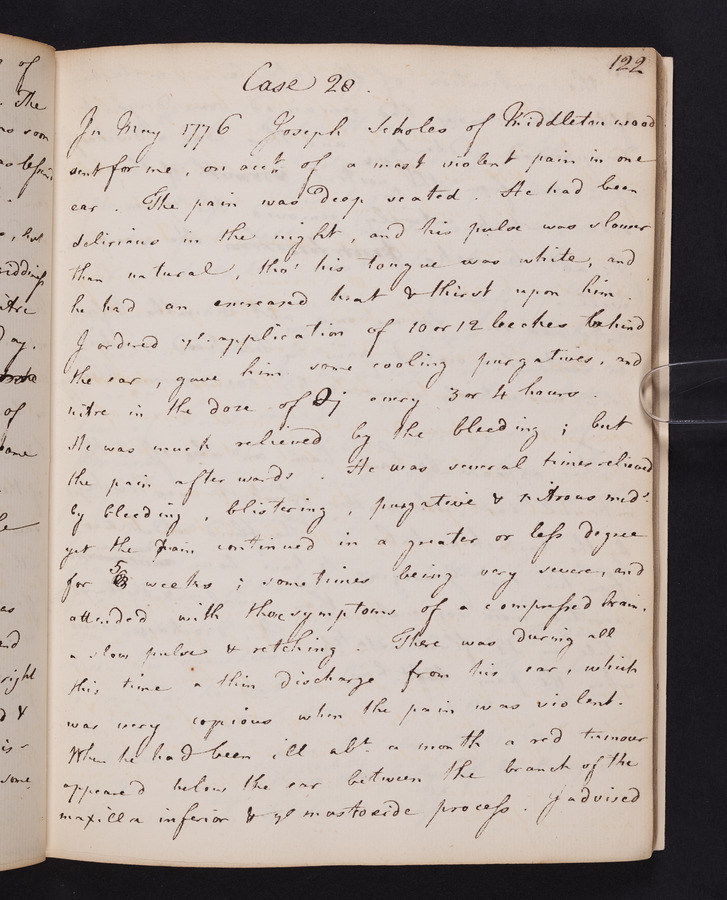 122
Case 20.
In May 1776 Joseph Scholes of Middleton wood
sent for me, on acct. of a most violent pain in one
ear. The pain was deep seated. He had been
delirious in the night, and his pulse was slower
than natural, tho' his tongue was white, and
he had an encreased heat & thirst upon him.
I ordered ye. application of 10 or 12 leeches behind
the ear, gave him some cooling purgatives, and
nitre in the dose of ℈j every 3 or 4 hours.
He was much relieved by the bleeding; but
the pain afterwards. He was several times relieved
by bleeding, blistering, purgative & nitrous meds.
yet the pain continued in a greater or less degree
for 5 weeks; sometimes being very severe, and
attended with the symptoms of a compressed brain,
a slow pulse & retching. There was during all
this time a thin discharge from his ear, which
was very copious when the pain was violent.
When he had been ill abt. a month a red tumour
appeared below the ear between the branch of the
maxilla inferior & ye mastoeide process. I advised
of
The
soon
of
as
right
some